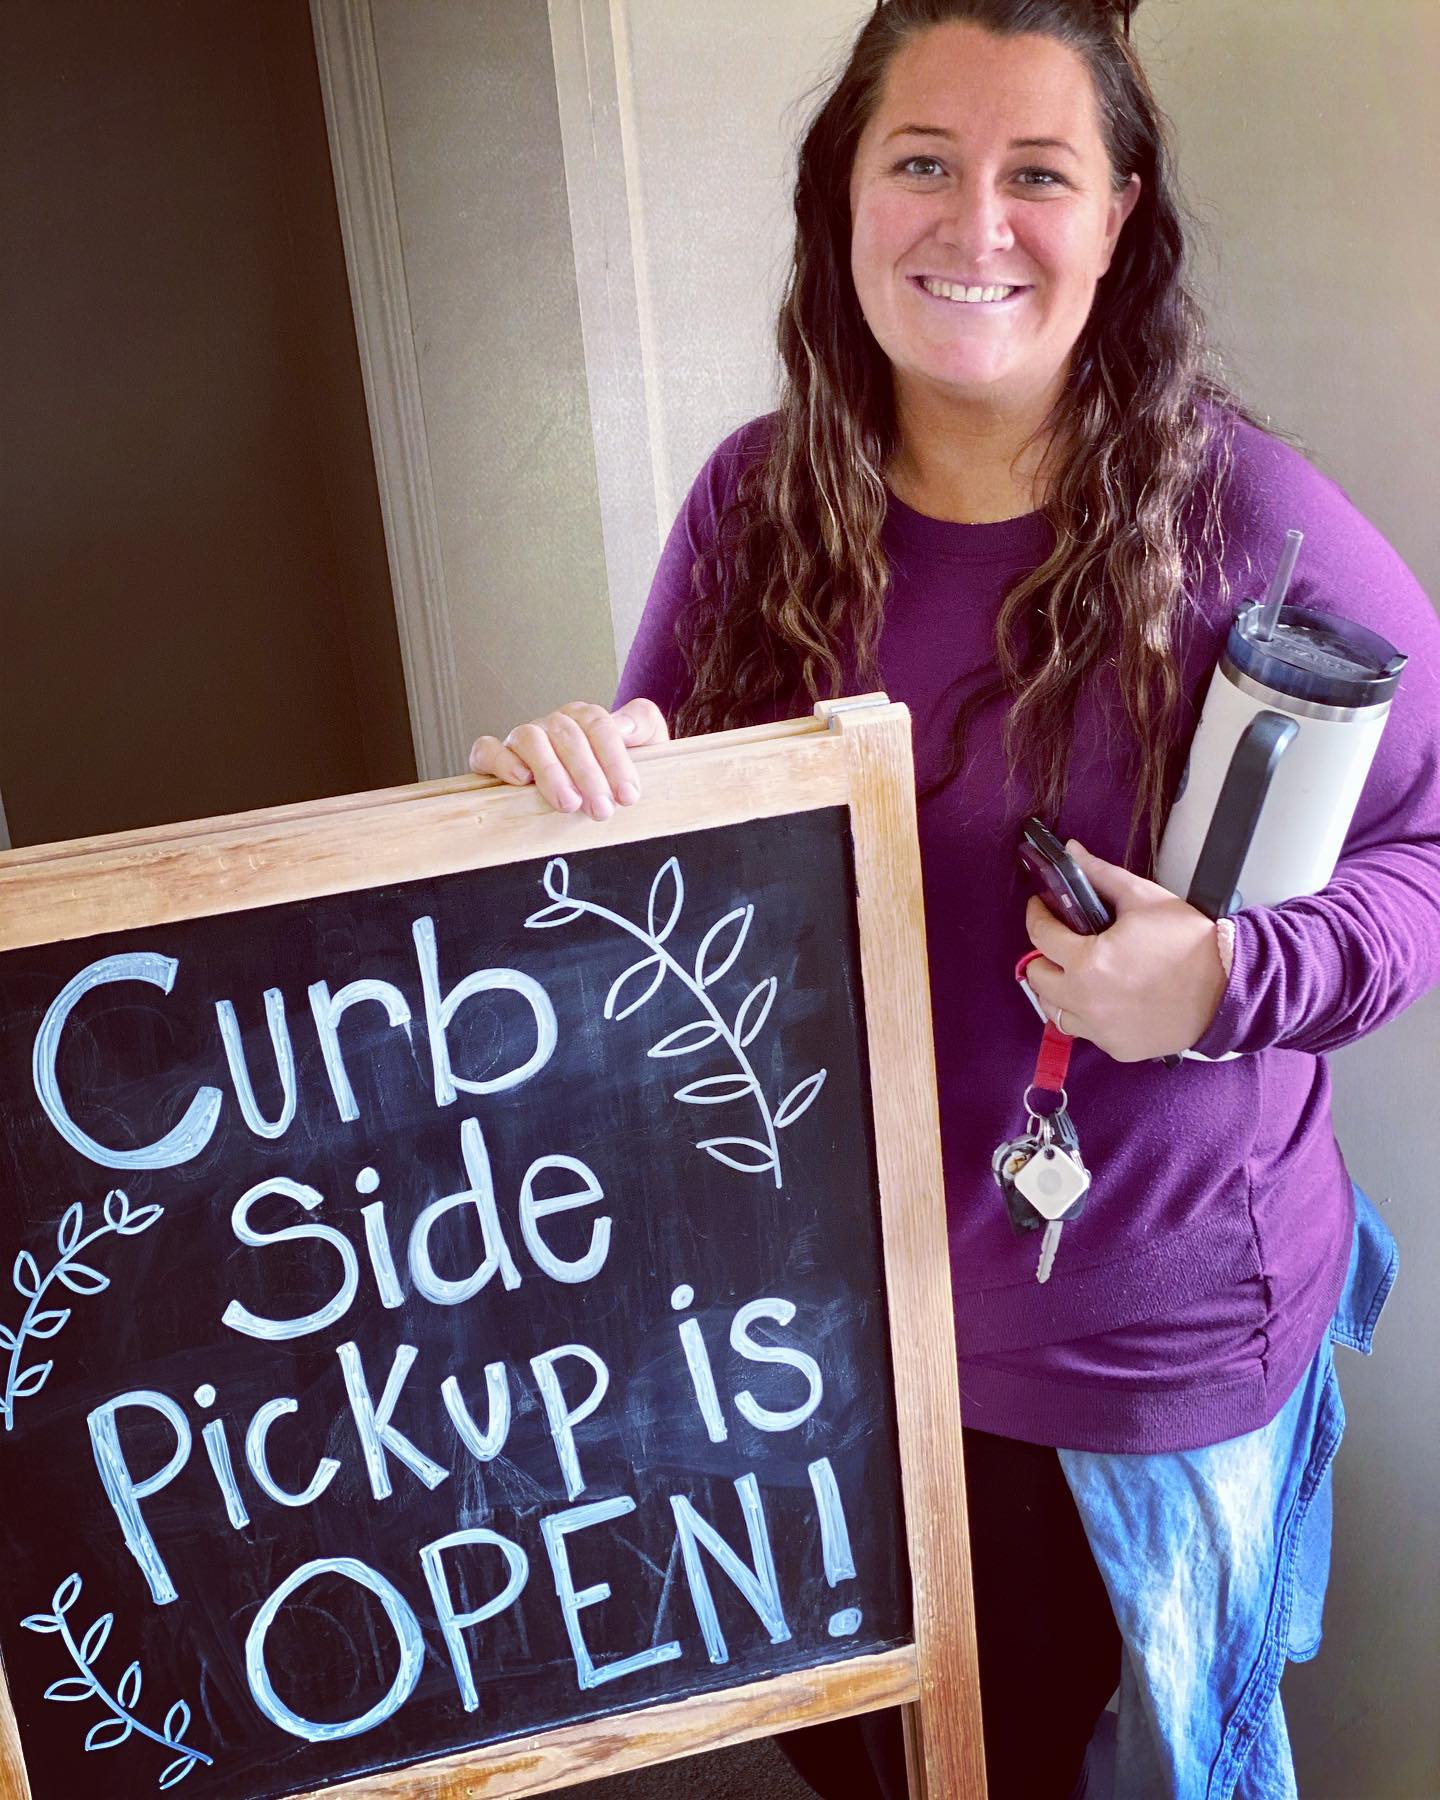 Curb
Side
Pickup is
OPEN!